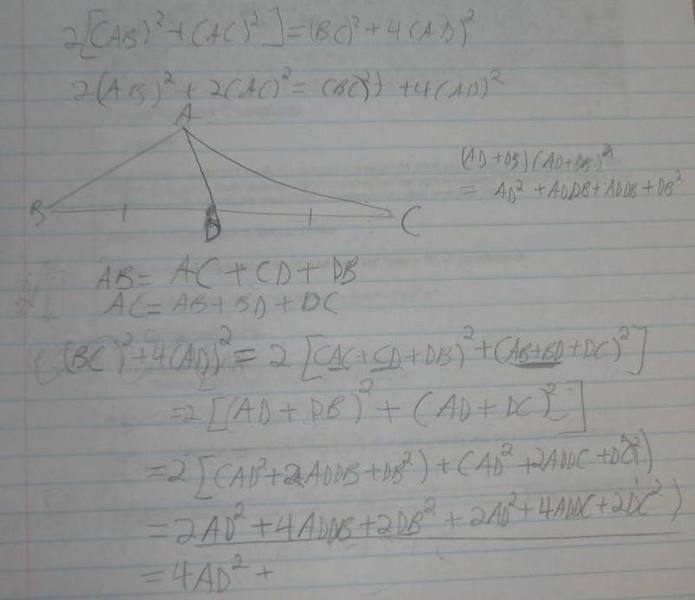 2[(AB)² + (AC)²] = (BC)² + 4(AD)²
2(AB)² + 2(AC)² = (BC)² + 4(AD)²
A
B
D
C
(AD + DB)(AD + DB)²
= AD² + ADDB + ADDB + DB²
AB = AC + CD + DB
AC = AB + BD + DC
(BC)² + 4(AD)² = 2[(AC + CD + DB)² + (AB + BD + DC)²]
= 2[(AD + DB)² + (AD + DC)²]
= 2[(AD² + 2ADDB + DB²) + (AD² + 2ADDC + DC²)
= 2AD² + 4ADDB + 2DB² + 2AD² + 4ADDC + 2DC²)
= 4AD² +